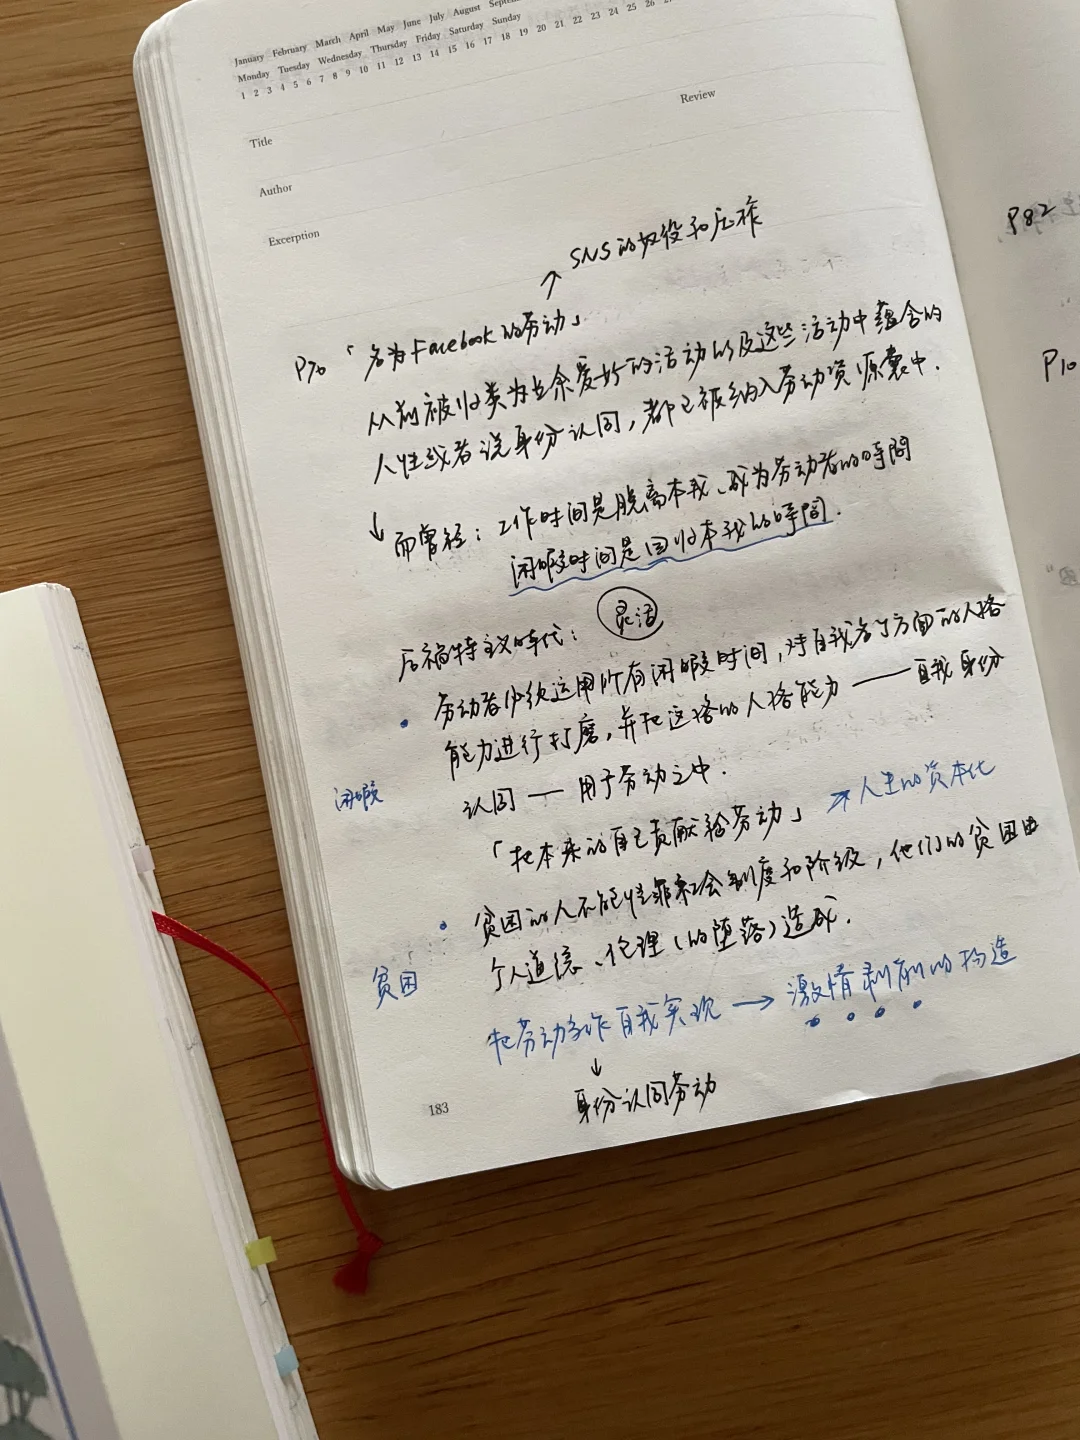 January February March April May June July August
Monday Tuesday Wednesday Thursday Friday Saturday Sunday
1 2 3 4 5 6 7 8 9 10 11 12 13 14 15 16 17 18 19 20 21 22 23 24 25 26
Title
Review
Author
Excerption
SNS的奴役和压榨
P70 「名为Facebook的劳动」
从前被归类为业余爱好的活动以及这些活动中蕴含的
人性或者说身份认同，都已被纳入劳动资源囊中.
↓而曾经：工作时间是脱离本我、成为劳动者的時間
闲暇时间是回归本我的時間.
后福特主义時代： 灵活
• 劳动者必须运用所有闲暇时间，对自我各个方面的人格
能力进行打磨，并把这格的人格能力——自我身份
闲暇
认同——用于劳动之中.
「把本来的自己贡献给劳动」 → 人生的资本化
• 贫困的人不能怪罪社会制度和阶级，他们的贫困由
贫困
个人道德、伦理（的堕落）造成.
把劳动当作自我实现 → 激情剥削的构造
↓
身份认同劳动
183
P82
P10